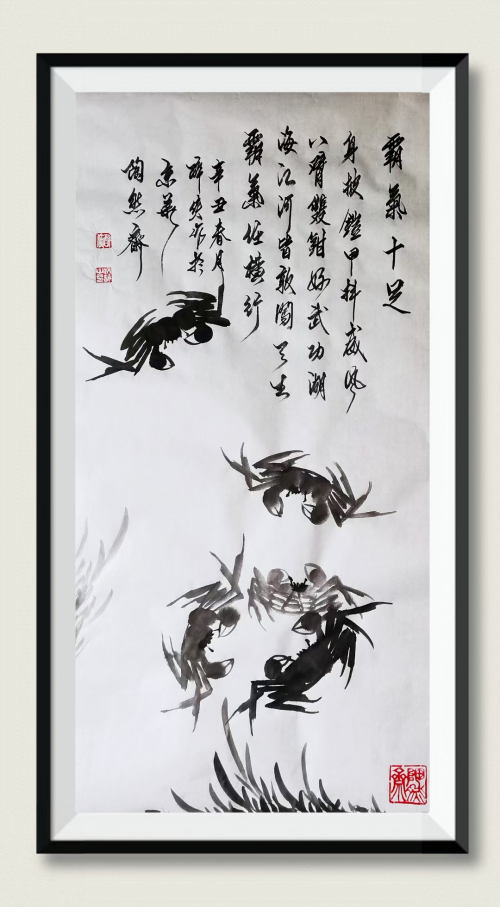 霸氣十足
身披鎧甲抖威风
八臂雙鉗好武功湖
海江河皆敢闖天生
霸氣任橫行
辛丑春月
作於
京華
陶然齋